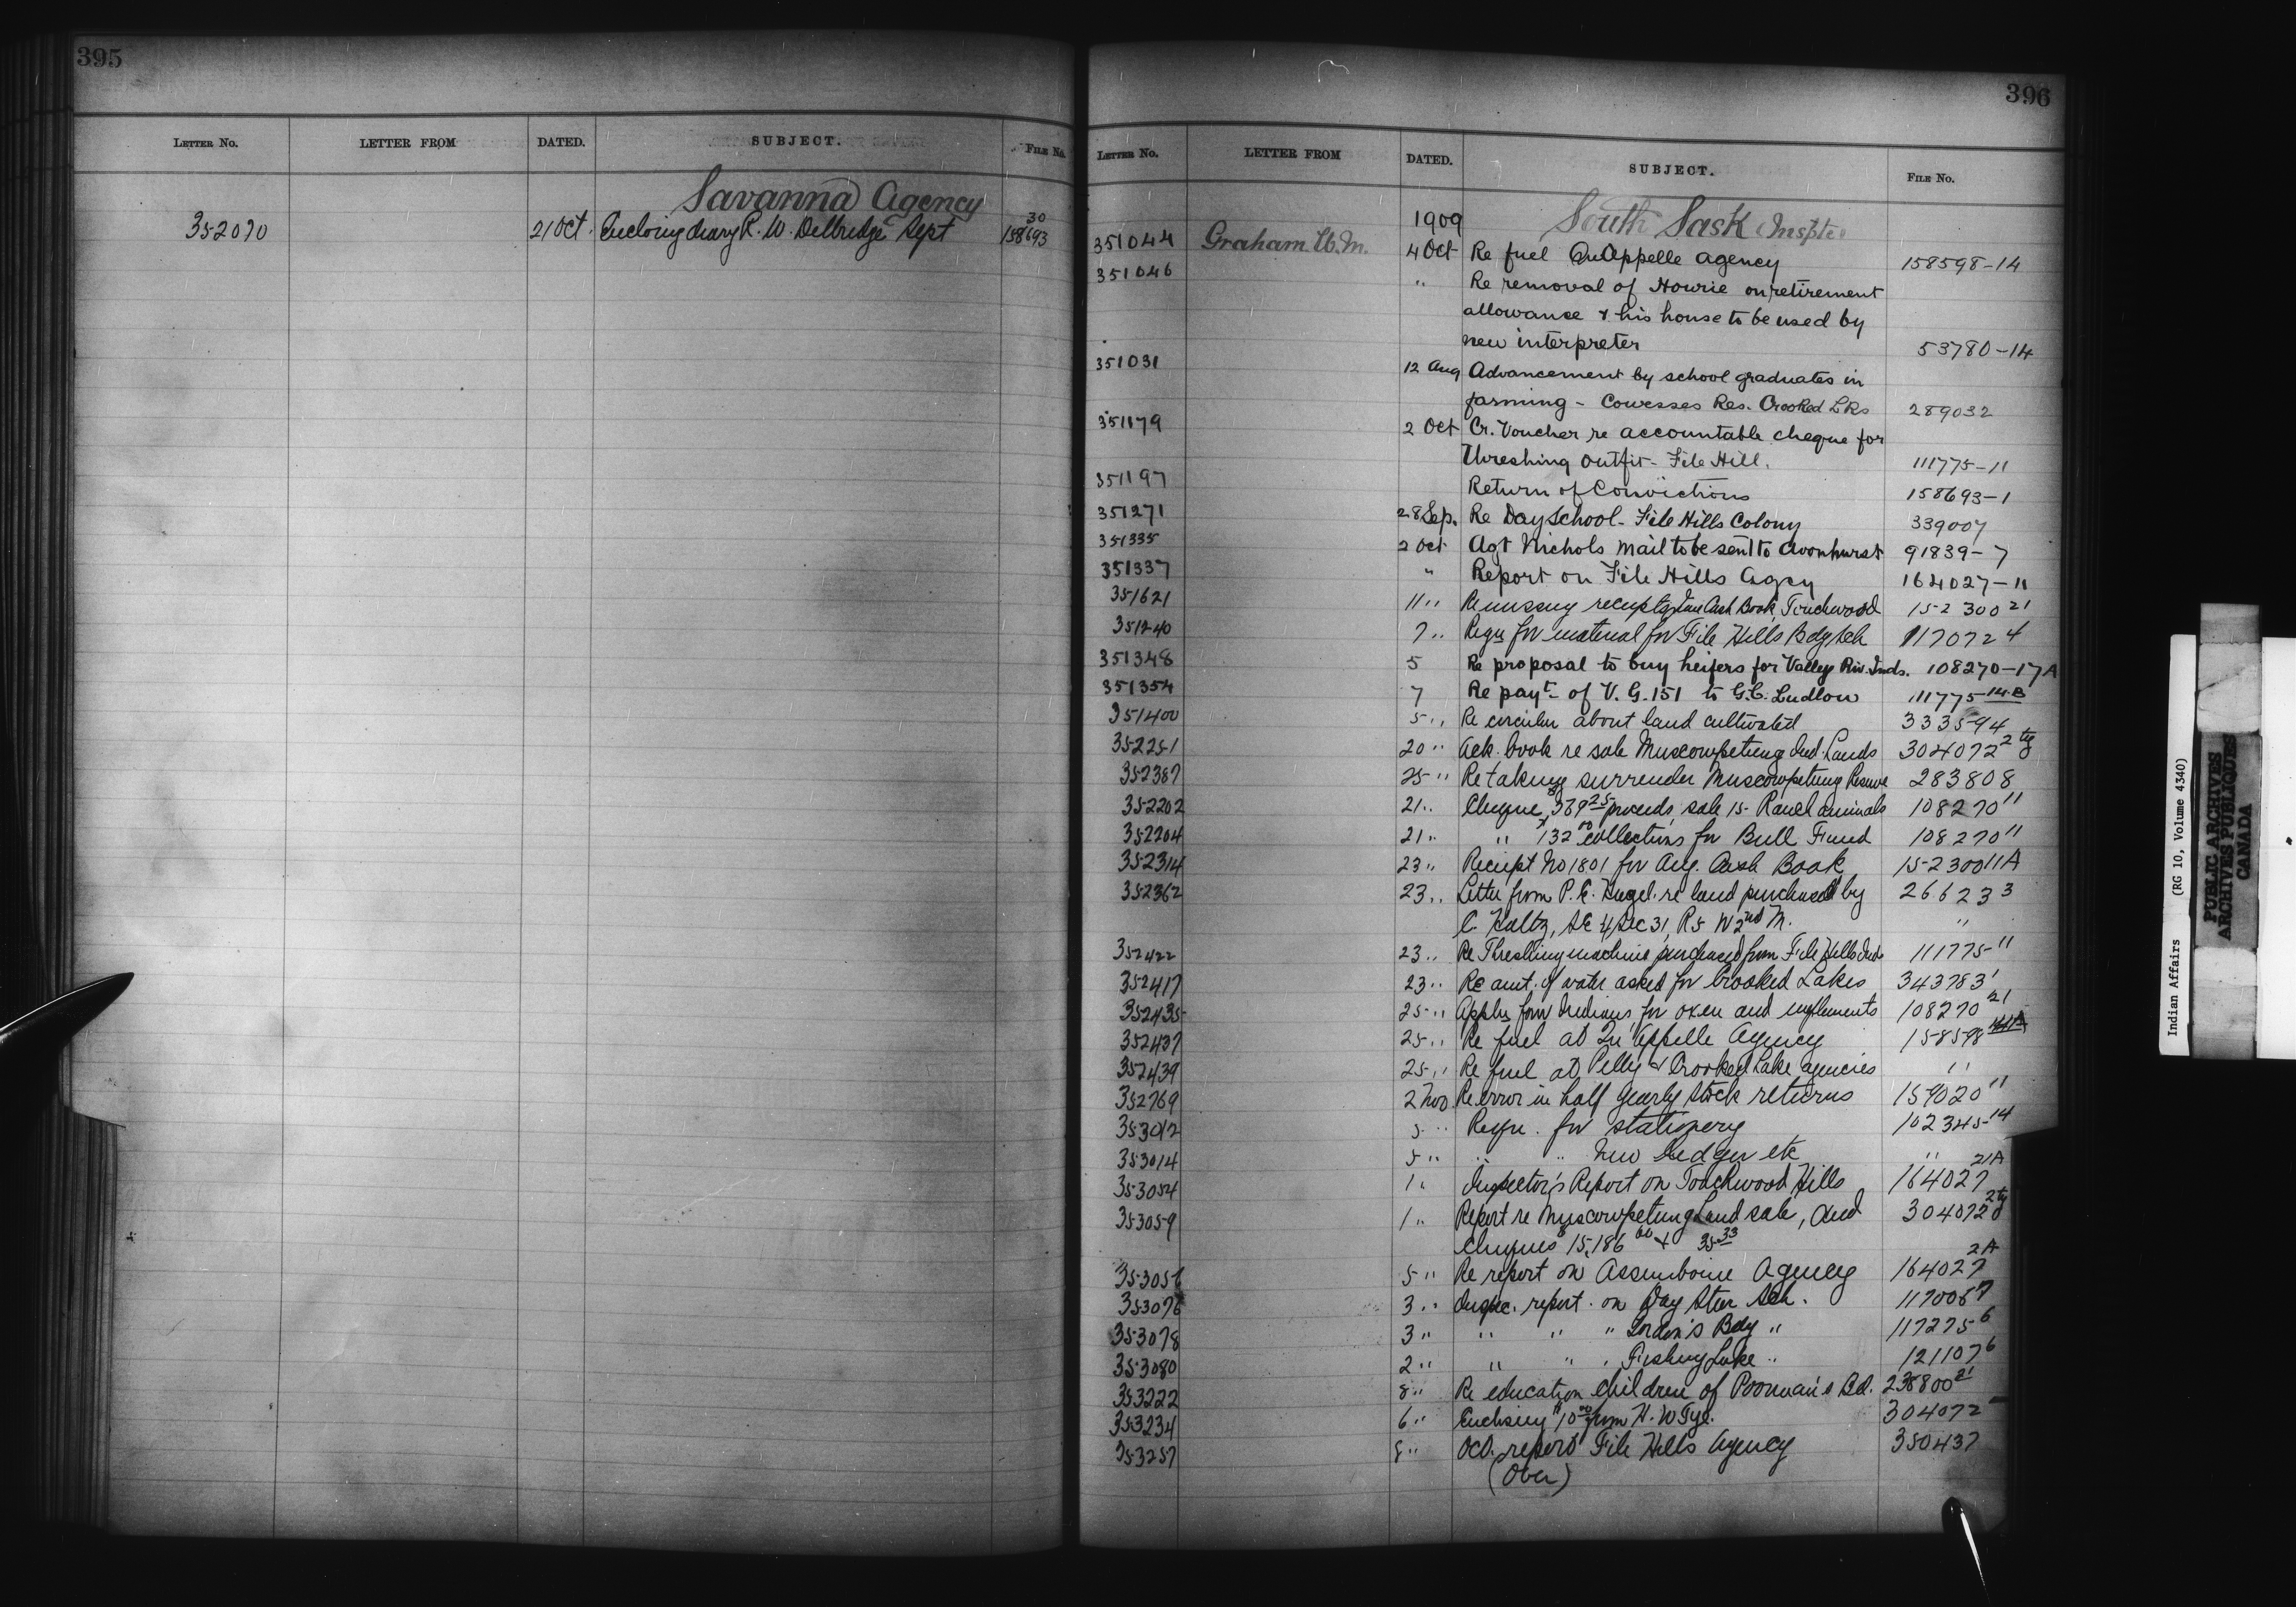 395
LETTER NO. LETTER FROM DATED. SUBJECT. FILE No.
Savanna Agency
352070 21 Oct. Encloing diary R. W. Delbridge Sept 158693 30
396
LETTER NO. LETTER FROM DATED. SUBJECT. FILE No.
1909 South Sask Inspte
351044 Graham W.M. 4 Oct Re fuel Qu'Appelle agency 158598-14
351046 " Re removal of Hourie on retirement
allowance & his house to be used by
new interpreter 53780-14
351031 12 Aug Advancement by school graduates in
farming - Cowesses Res. Crooked LKs 289032
351179 2 Oct Cr. Voucher re accountable cheque for
Threshing outfit - File Hill. 111775-11
351197 Return of Convictions 158693-1
351271 28 Sep. Re Day School - File Hills Colony 339007
351335 2 Oct Agt Nichols mail to be sent to Avonhurst 91839-7
351337 " Report on File Hills Agcy 164027-11
351621 11 " Re missing receipts Cash Book, Touchwood 152300 21
351240 7 " Requ for material for File Hills Bdg Sch 117072 4
351348 5 Re proposal to buy heifers for Valley Riv. Inds. 108270-17A
351354 7 Re payt of V. G. 151 to G.C. Ludlow 111775 14-B
351400 5 " Re circular about land cultivated 333594
352251 20 " Ack. book re sale Muscowpetung Ind. Lands 304072 2
352387 25 " Re taking surrender Muscowpetung Reserve 283808
352202 21 " Cheque $369 25 proceeds, sale 15 Ranch animals 108270 11
352204 21 " " $132 00 collections for Bull Fund 108270 11
352314 23 " Receipt No 1801 for Aug. Cash Book 152300 11A
352362 23 " Letter from P. E. re land purchased by 266233
C. Holtz, SE 4 Sec 31, R5 W 2nd M. "
352422 23 " Re Threshing machine purchased from File Hills Inds 111775 11
352417 23 " Re amt. of water asked for Crooked Lakes 343783 1
352435 25 " Appln from Indians for oxen and implements 108270 21
352437 25 " Re fuel at Qu'Appelle Agency 158598
352439 25 " Re fuel at Pelly & Crooked Lake agencies "
352769 2 Nov Re error in half yearly stock returns 159020 11
353012 5 " Requ. for stationery 102345 14
353014 5 " " " New Ledger etc "
353054 1 " Inspector's Report on Touchwood Hills 164027 21A
353059 1 " Report re Muscowpetung Land sale, and 304072 2
cheques $15,186 00 & 35 33
353056 5 " Re report on Assiniboine Agency 164027 2A
353076 3 " Inspec. report on Day Star Sch. 117006 7
353078 3 " " " " Gordon's Bdg " 117275 6
353080 2 " " " " Fishing Lake " 121107 6
353222 8 " Re education children of Poorman's Bd. 238800 21
353234 6 " Enclosing $10 00 from H. W Tye. 304072
353257 8 " Oct. report File Hills Agency 350437
(Over)
Indian Affairs (RG 10, Volume 4340)
PUBLIC ARCHIVES
ARCHIVES PUBLIQUES
CANADA